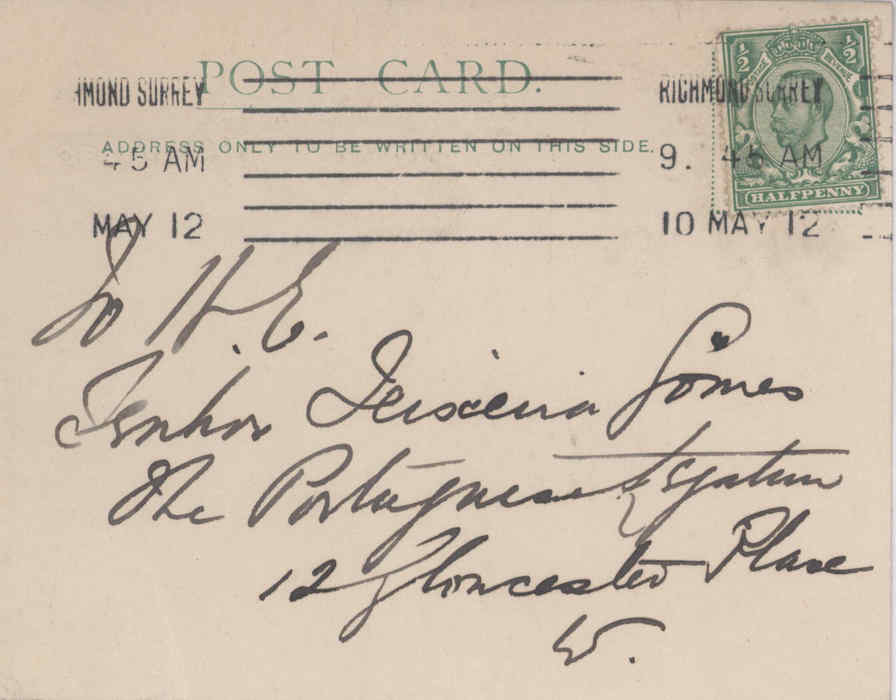 POST CARD.
ADDRESS ONLY TO BE WRITTEN ON THIS SIDE.
MOND SURREY
45 AM
MAY 12
RICHMOND SURREY
9. 45 AM
10 MAY 12
½ ½
POSTAGE REVENUE
HALFPENNY
To H.E.
Senhor Teixeira Gomes
The Portuguese Legation
12 Gloucester Place
W.